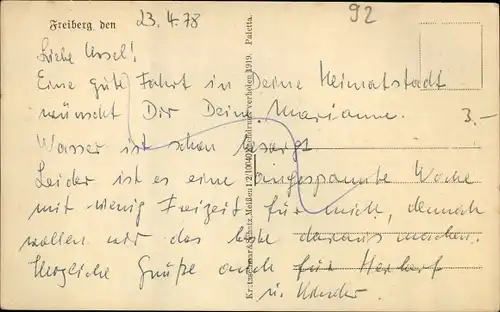 Freiberg, den 23. 4. 78
92
Liebe Ursel!
Eine gute Fahrt in Deine Heimatstadt
wünscht Dir Deine Marianne.
3.-
Wasser ist schon besorgt
Leider ist es eine angespannte Woche
mit wenig Freizeit für mich, dennoch
wollen wir das beste daraus machen.
Herzliche Grüße auch für Herbert
u. Kinder.
Kretzschmar & Schatz, Meißen 1/2 10040 Nachdruck verboten 1919. Paletta.